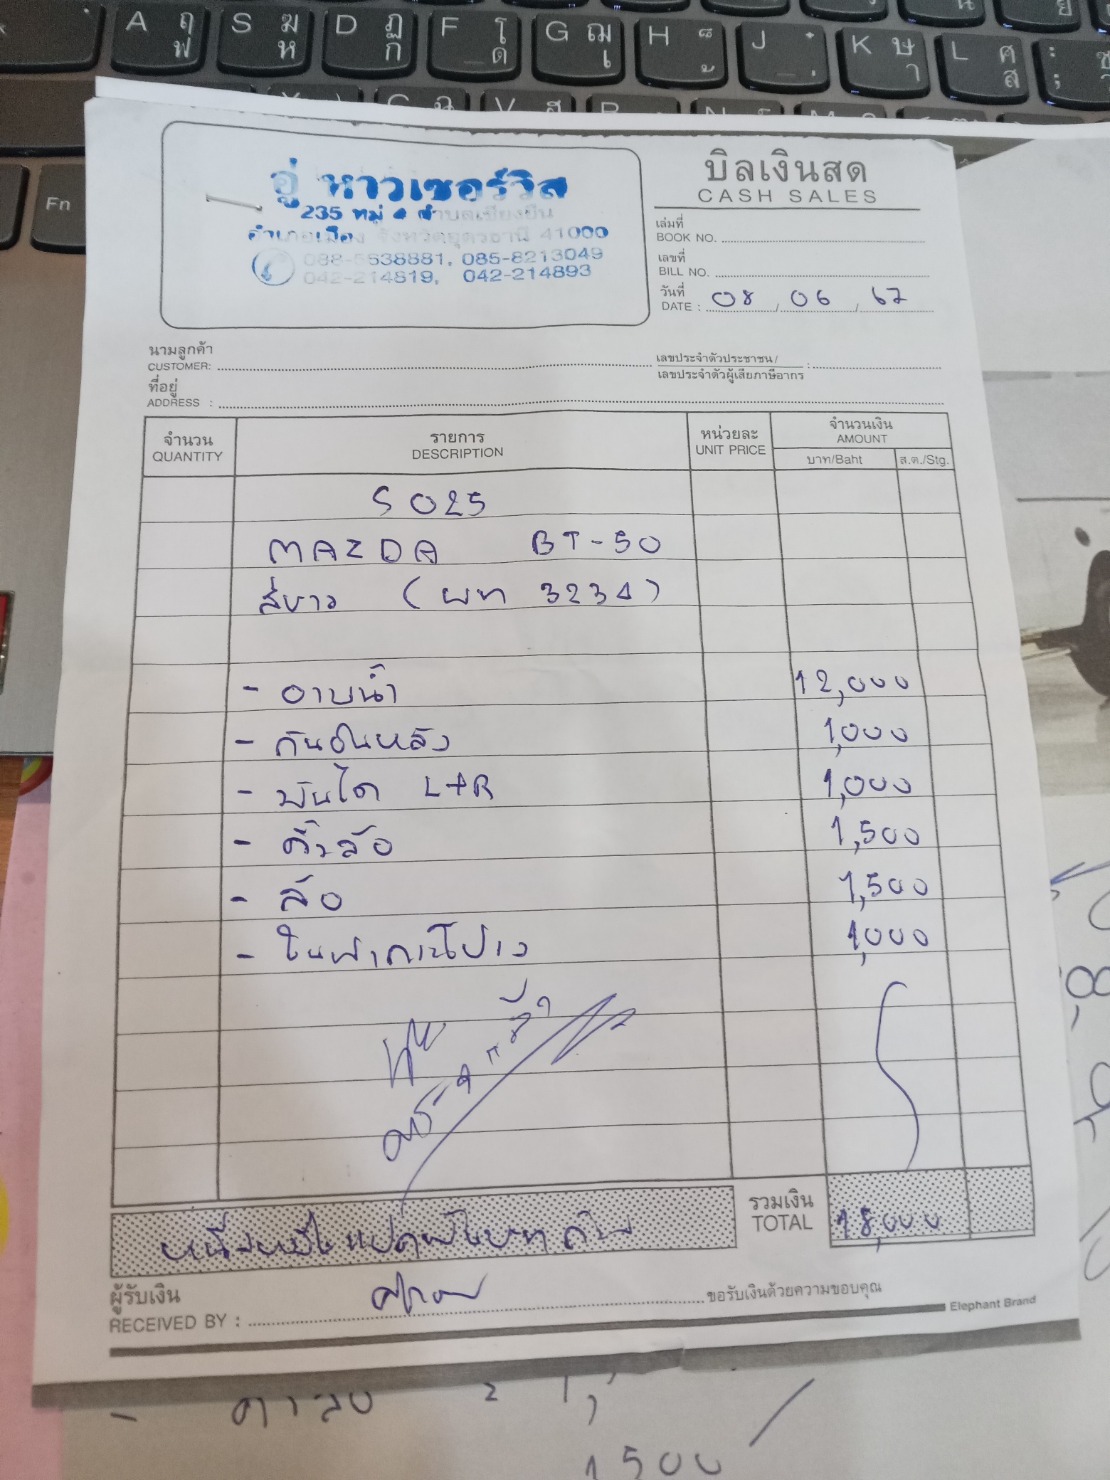 A ฤ ฟ S ฆ ห D ฏ ก F โ ด G ฌ เ H ็ ้ J ๋ ่ K ษ า L ศ ส : ;
Fn
อู่ หาวเซอร์วิส
235 หมู่ 4 ตำบลเชียงยืน
อำเภอเมือง จังหวัดอุดรธานี 41000
088-5538881, 085-8213049
042-214819, 042-214893
บิลเงินสด
CASH SALES
เล่มที่
BOOK NO.
เลขที่
BILL NO.
วันที่
DATE : 08 / 06 / 67
นามลูกค้า
CUSTOMER:
เลขประจำตัวประชาชน / :
เลขประจำตัวผู้เสียภาษีอากร
ที่อยู่
ADDRESS :
จำนวน รายการ หน่วยละ จำนวนเงิน
QUANTITY DESCRIPTION UNIT PRICE AMOUNT
บาท/Baht ส.ต./Stg.
5025
MAZDA BT-50
สีขาว (ผท 3234)
- อาบน้ำ 12,000
- กันชนหลัง 1,000
- บันได L+R 1,000
- คิ้วล้อ 1,500
- ล้อ 1,500
- 1,000
รวมเงิน
TOTAL 18,000
หนึ่งหมื่นแปดพันบาทถ้วน
ผู้รับเงิน
RECEIVED BY :
ขอรับเงินด้วยความขอบคุณ
Elephant Brand
1500